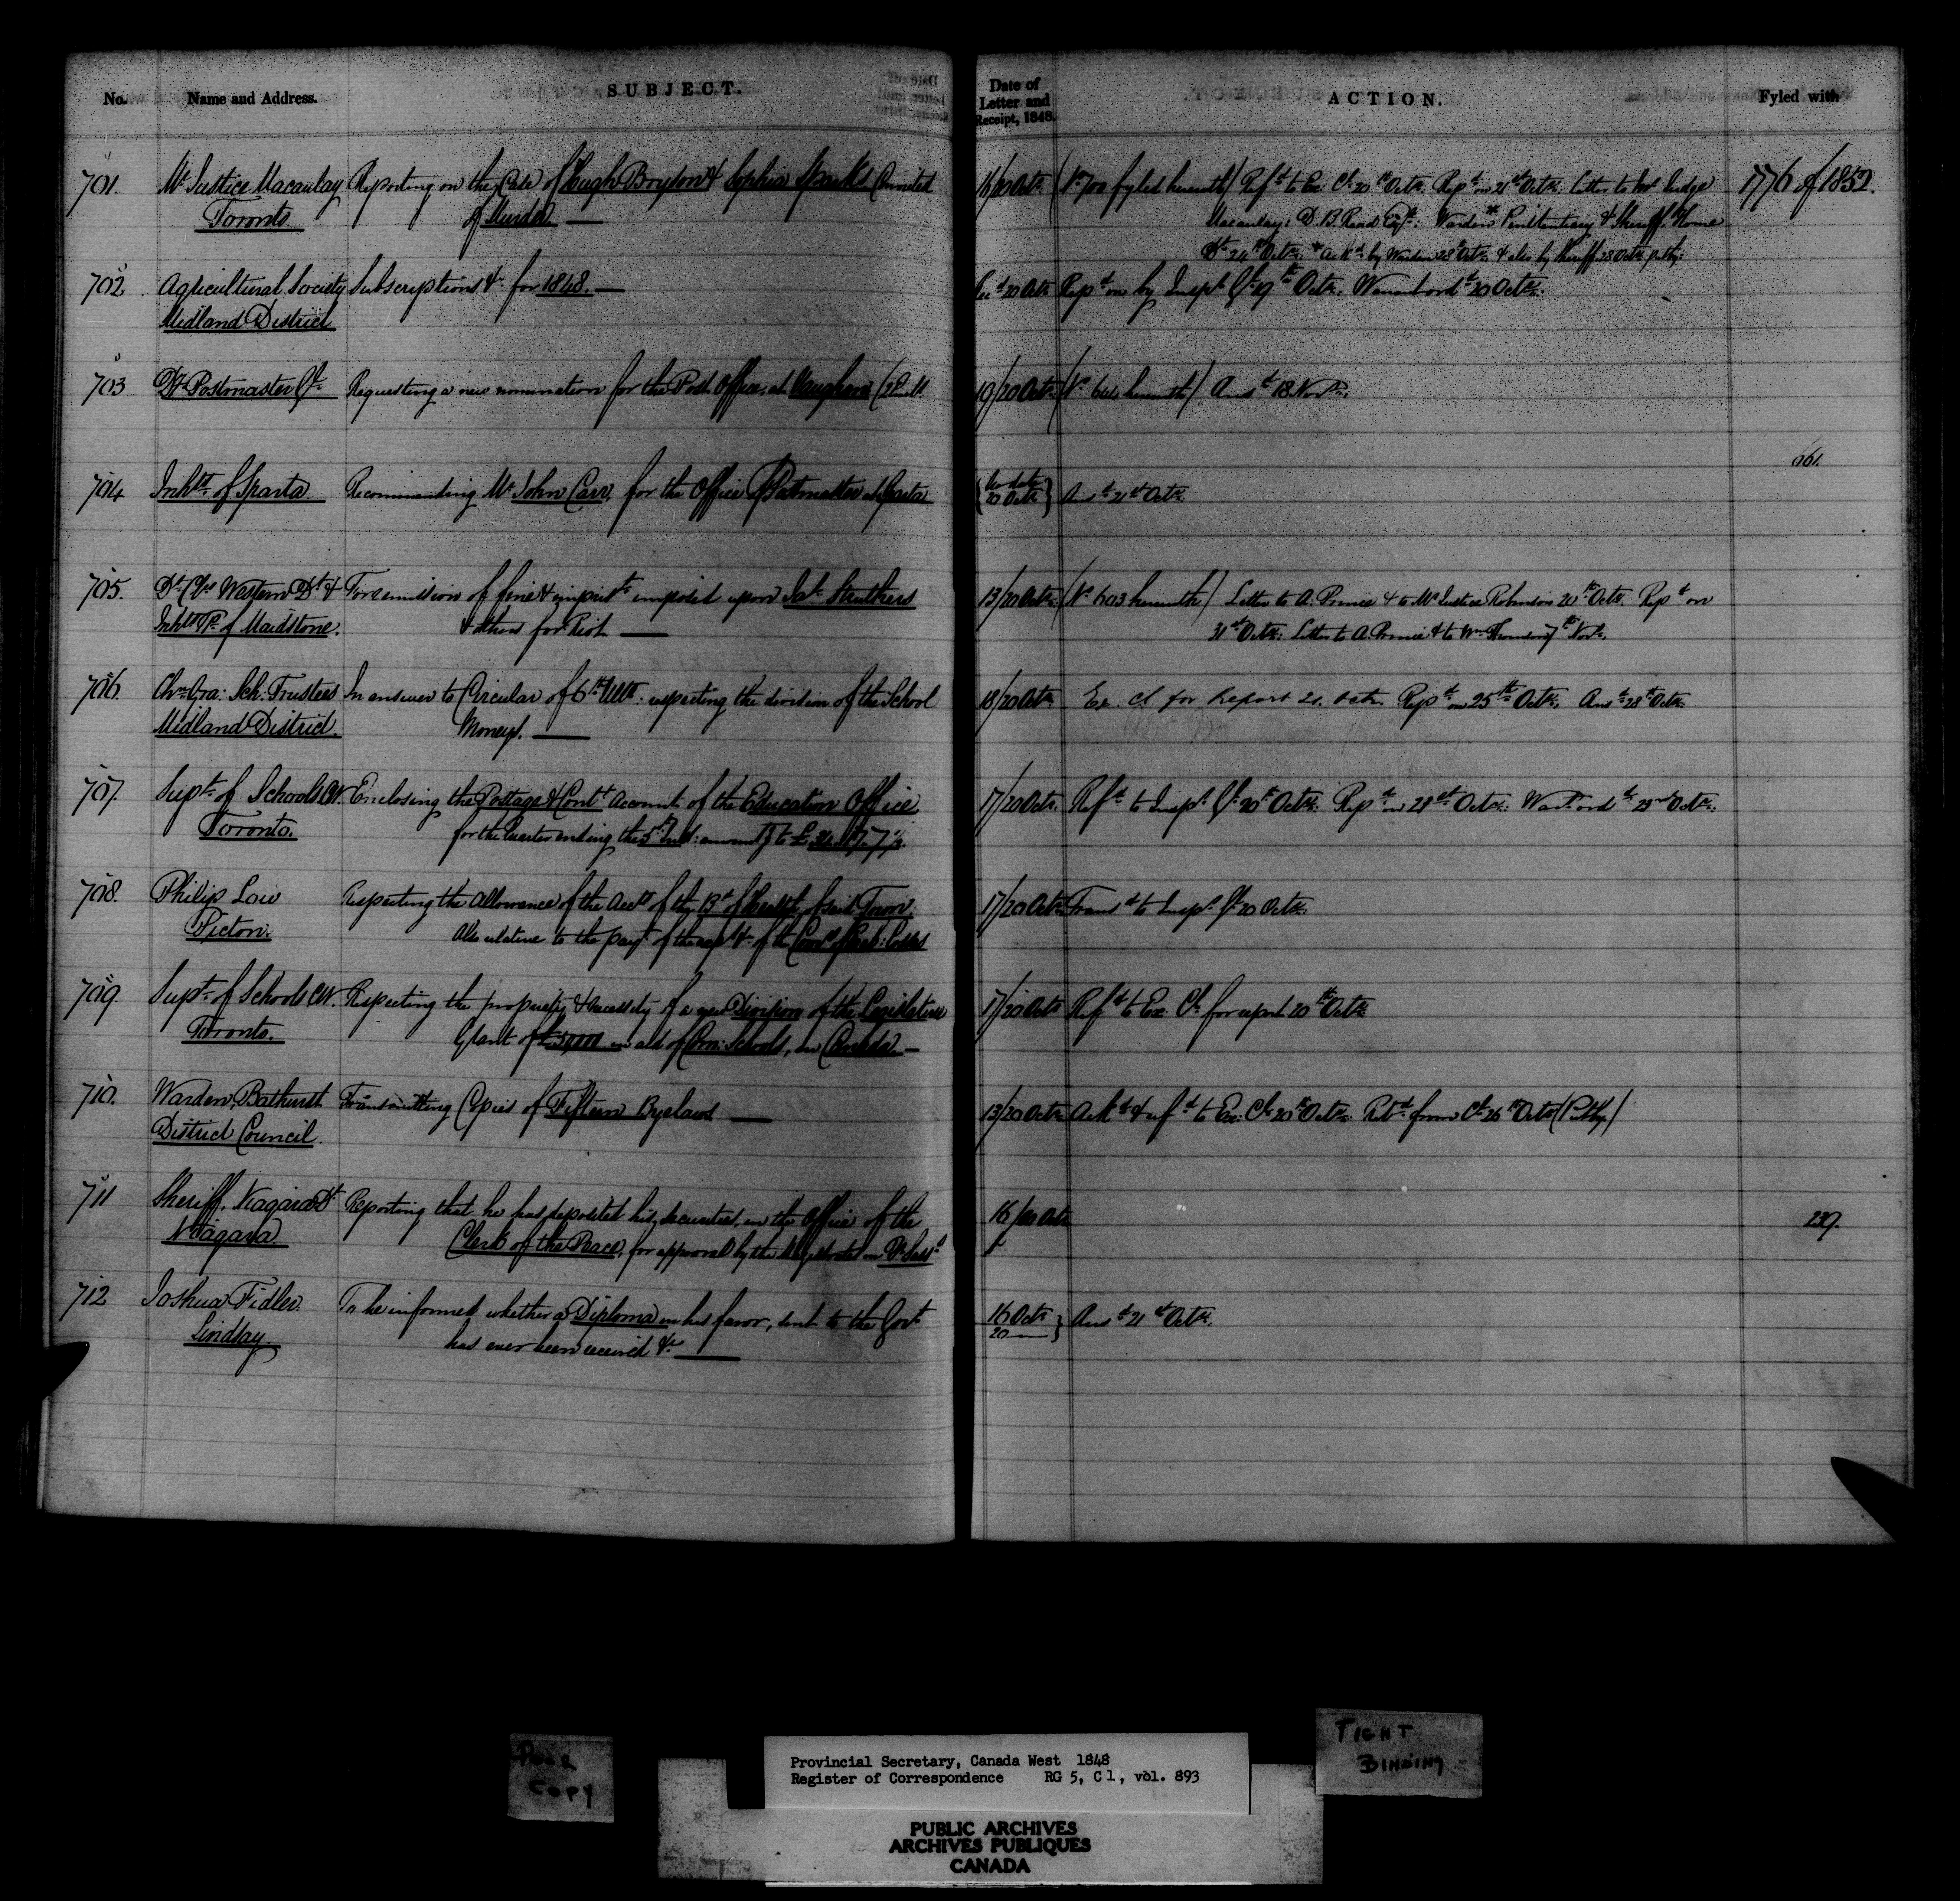 No. Name and Address. SUBJECT. Date of Letter and Receipt, 1848. ACTION. Fyled with
701. Mr Justice Macaulay Reporting on the Case of Hugh Boyson & Sophia Sparks Convicted 16/20 Octr. (No 700 fyled herewith) Refd to Ex: Cl. 20th Octr. Repd on 21st Octr. Letter to Mr Judge 1776 of 1852.
Toronto. of Murder — Macaulay: D. B. Read Esqr: Warden* Penitentiary & Sheriff, Home
Dt 24th Octr. *Ackd by Warden 28th Octr. & also by Sheriff 28 Octr
702. Agricultural Society Subscriptions &c for 1848. — Recd 20 Octr Repd on by Inspr Gl 19th Octr. Warrant ord 20 Octr.
Midland District
703 Dy Postmaster Gl Requesting a new nomination for the Post Office at Vaughan 19/20 Octr (No herewith) Ansd 13 Novr.
704 Inhts of Sparta. Recommending Mr John Carr, for the Office of Postmaster at Sparta {No date 20 Octr} Ansd 21st Octr. 661.
705. Dt Cl Western Dt & For remission of fine & imprist imposed upon Jas Struthers 13/20 Octr. (No 603 herewith) Letter to A. Prince & to Mr Justice Robinson 20th Octr. Repd on
Inhts Tp. of Maidstone. & others for Riot — 31st Octr. Letter to A Prince & to Wm 7th Novr.
706. Chn Sch: Trustees In answer to Circular of 6th Ulto. respecting the division of the School 18/20 Octr Ex. Cl for Report 20. Octr. Repd on 25th Octr. Ansd 28th Octr.
Midland District. Moneys. —
707. Supt of Schools C.W. Enclosing the Postage & Cont Account of the Education Office 17/20 Octr. Refd to Inspr Gl 20th Octr. Repd on Octr. Warrt ord 23rd Octr.
Toronto. for the Quarter ending the 5th Inst: amountg to £
708. Philip Low Respecting the Allowance of the Accts of the Bd of Health of said Town. 17/20 Octr Transd to Inspr Gl 20 Octr.
Picton. Also relative to the payt of the &c of the
709. Supt of Schools C.W. Respecting the propriety & necessity of a new Division of the Legislative 17/20 Octr Refd to Ex: Cl. for report 20th Octr.
Toronto. Grant of £50,000 in aid of Com: Schools, in Canada —
710. Warden, Bathurst Transmitting Copies of Fifteen Byelaws — 13/20 Octr Ackd & refd to Ex: Cl 20th Octr. Retd from Cl 26th Octr
District Council.
711 Sheriff, Niagara Dt Reporting that he has deposited his securities, in the Office of the 16/20 Octr 239.
Niagara. Clerk of the Peace, for approval by the Magistrates in Qr Sess
712 Joshua Fidler. To be informed whether a Diploma in his favor, sent to the Govt 16 Octr 20 — } Ansd 21st Octr.
Lindsay. has ever been received &c —
POOR COPY
TIGHT BINDING
Provincial Secretary, Canada West 1848
Register of Correspondence RG 5, C 1, vol. 893
PUBLIC ARCHIVES
ARCHIVES PUBLIQUES
CANADA